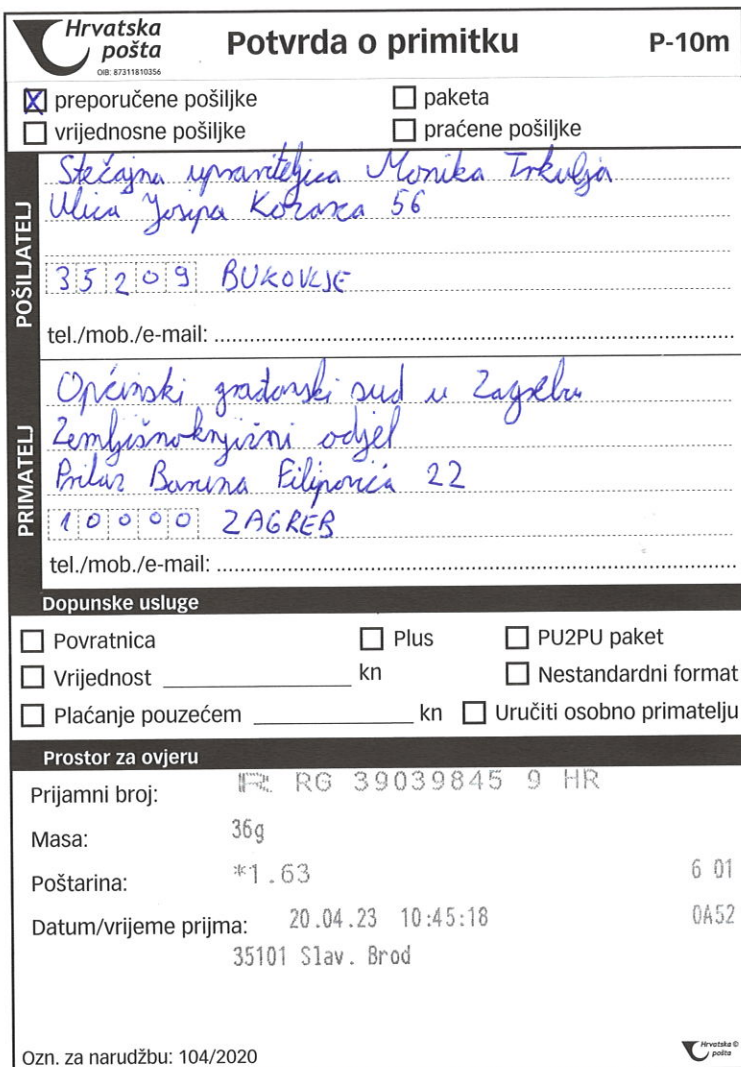 Hrvatska pošta
OIB: 87311810356
Potvrda o primitku
P-10m
preporučene pošiljke
paketa
vrijednosne pošiljke
praćene pošiljke
POŠILJATELJ
Stečajna upraviteljica Monika Trkulja
Ulica Josipa Kozarca 56
35209 BUKOVLJE
tel./mob./e-mail:
PRIMATELJ
Općinski građanski sud u Zagrebu
Zemljišnoknjižni odjel
Prilaz Baruna Filipovića 22
10000 ZAGREB
tel./mob./e-mail:
Dopunske usluge
Povratnica
Plus
PU2PU paket
Vrijednost kn
Nestandardni format
Plaćanje pouzećem kn
Uručiti osobno primatelju
Prostor za ovjeru
Prijamni broj: R RG 39039845 9 HR
Masa: 36g
Poštarina: *1.63 6 01
Datum/vrijeme prijma: 20.04.23 10:45:18 0A52
35101 Slav. Brod
Ozn. za narudžbu: 104/2020
Hrvatska pošta ©